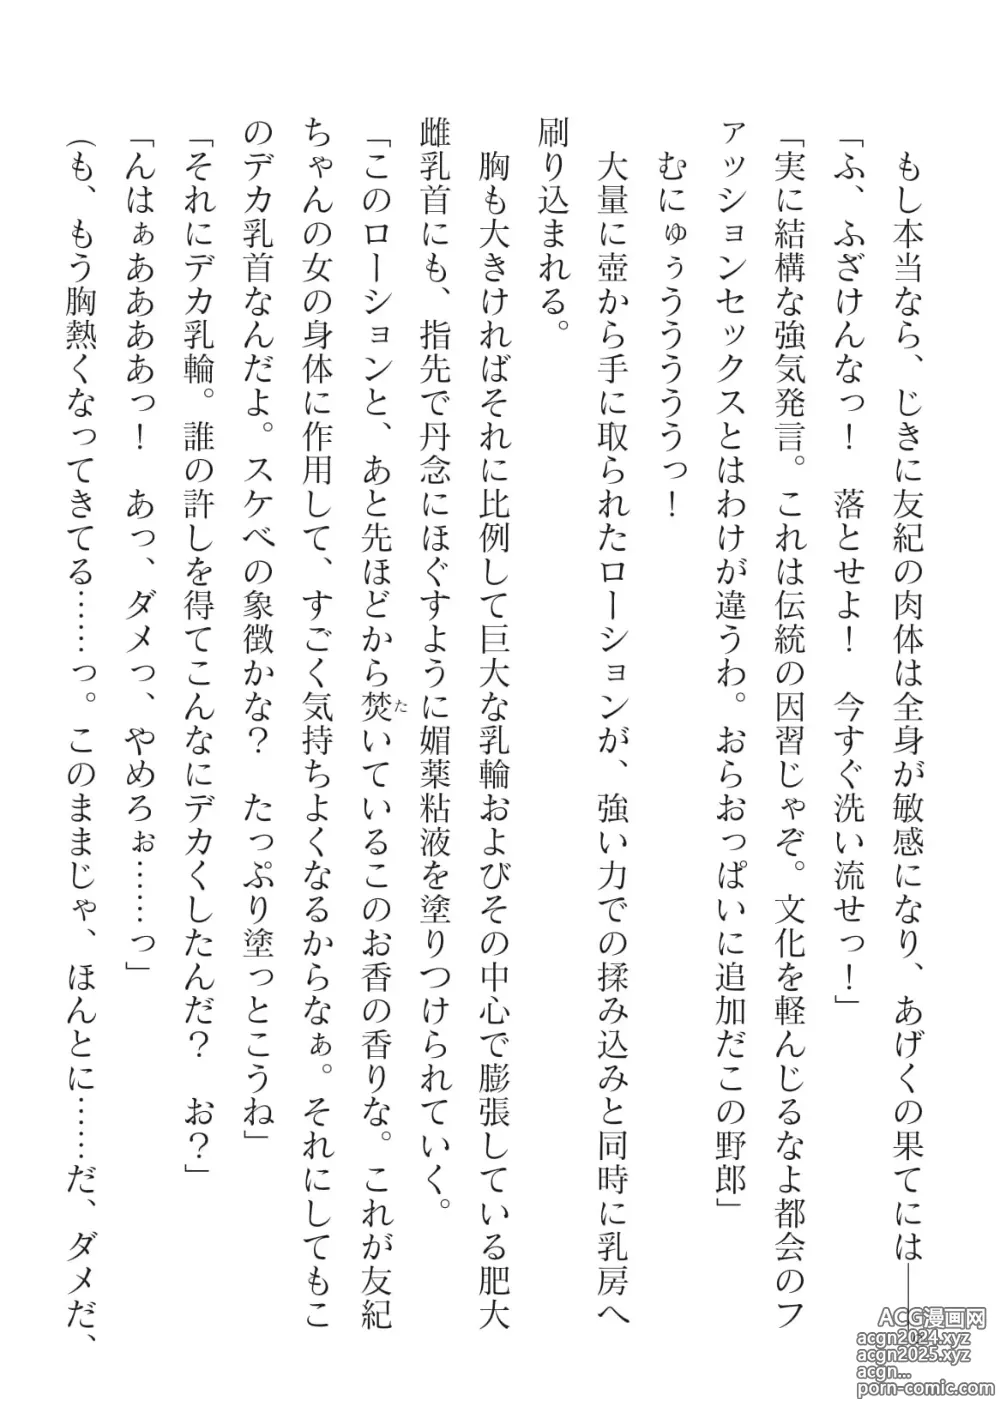 もし本当なら、じきに友紀の肉体は全身が敏感になり、あげくの果てには――
「ふ、ふざけんなっ！　落とせよ！　今すぐ洗い流せっ！」
「実に結構な強気発言。これは伝統の因習じゃぞ。文化を軽んじるなよ都会のフ
ァッションセックスとはわけが違うわ。おらおっぱいに追加だこの野郎」
むにゅぅぅうううううっ！
大量に壺から手に取られたローションが、強い力での揉み込みと同時に乳房へ
刷り込まれる。
胸も大きければそれに比例して巨大な乳輪およびその中心で膨張している肥大
雌乳首にも、指先で丹念にほぐすように媚薬粘液を塗りつけられていく。
「このローションと、あと先ほどから焚いているこのお香の香りな。これが友紀
た
ちゃんの女の身体に作用して、すごく気持ちよくなるからなぁ。それにしてもこ
のデカ乳首なんだよ。スケベの象徴かな？　たっぷり塗っとこうね」
「それにデカ乳輪。誰の許しを得てこんなにデカくしたんだ？　お？」
「んはぁああああっ！　あっ、ダメっ、やめろぉ……っ」
（も、もう胸熱くなってきてる……っ。このままじゃ、ほんとに……だ、ダメだ、
ACG漫画网
acgn2024.xyz
acgn2025.xyz
acgn...
porn-comic.com